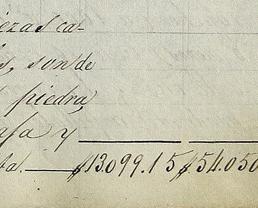 iezas ca-
s, son de
piedra,
nfa y
ta. $13.099.15 $54.050